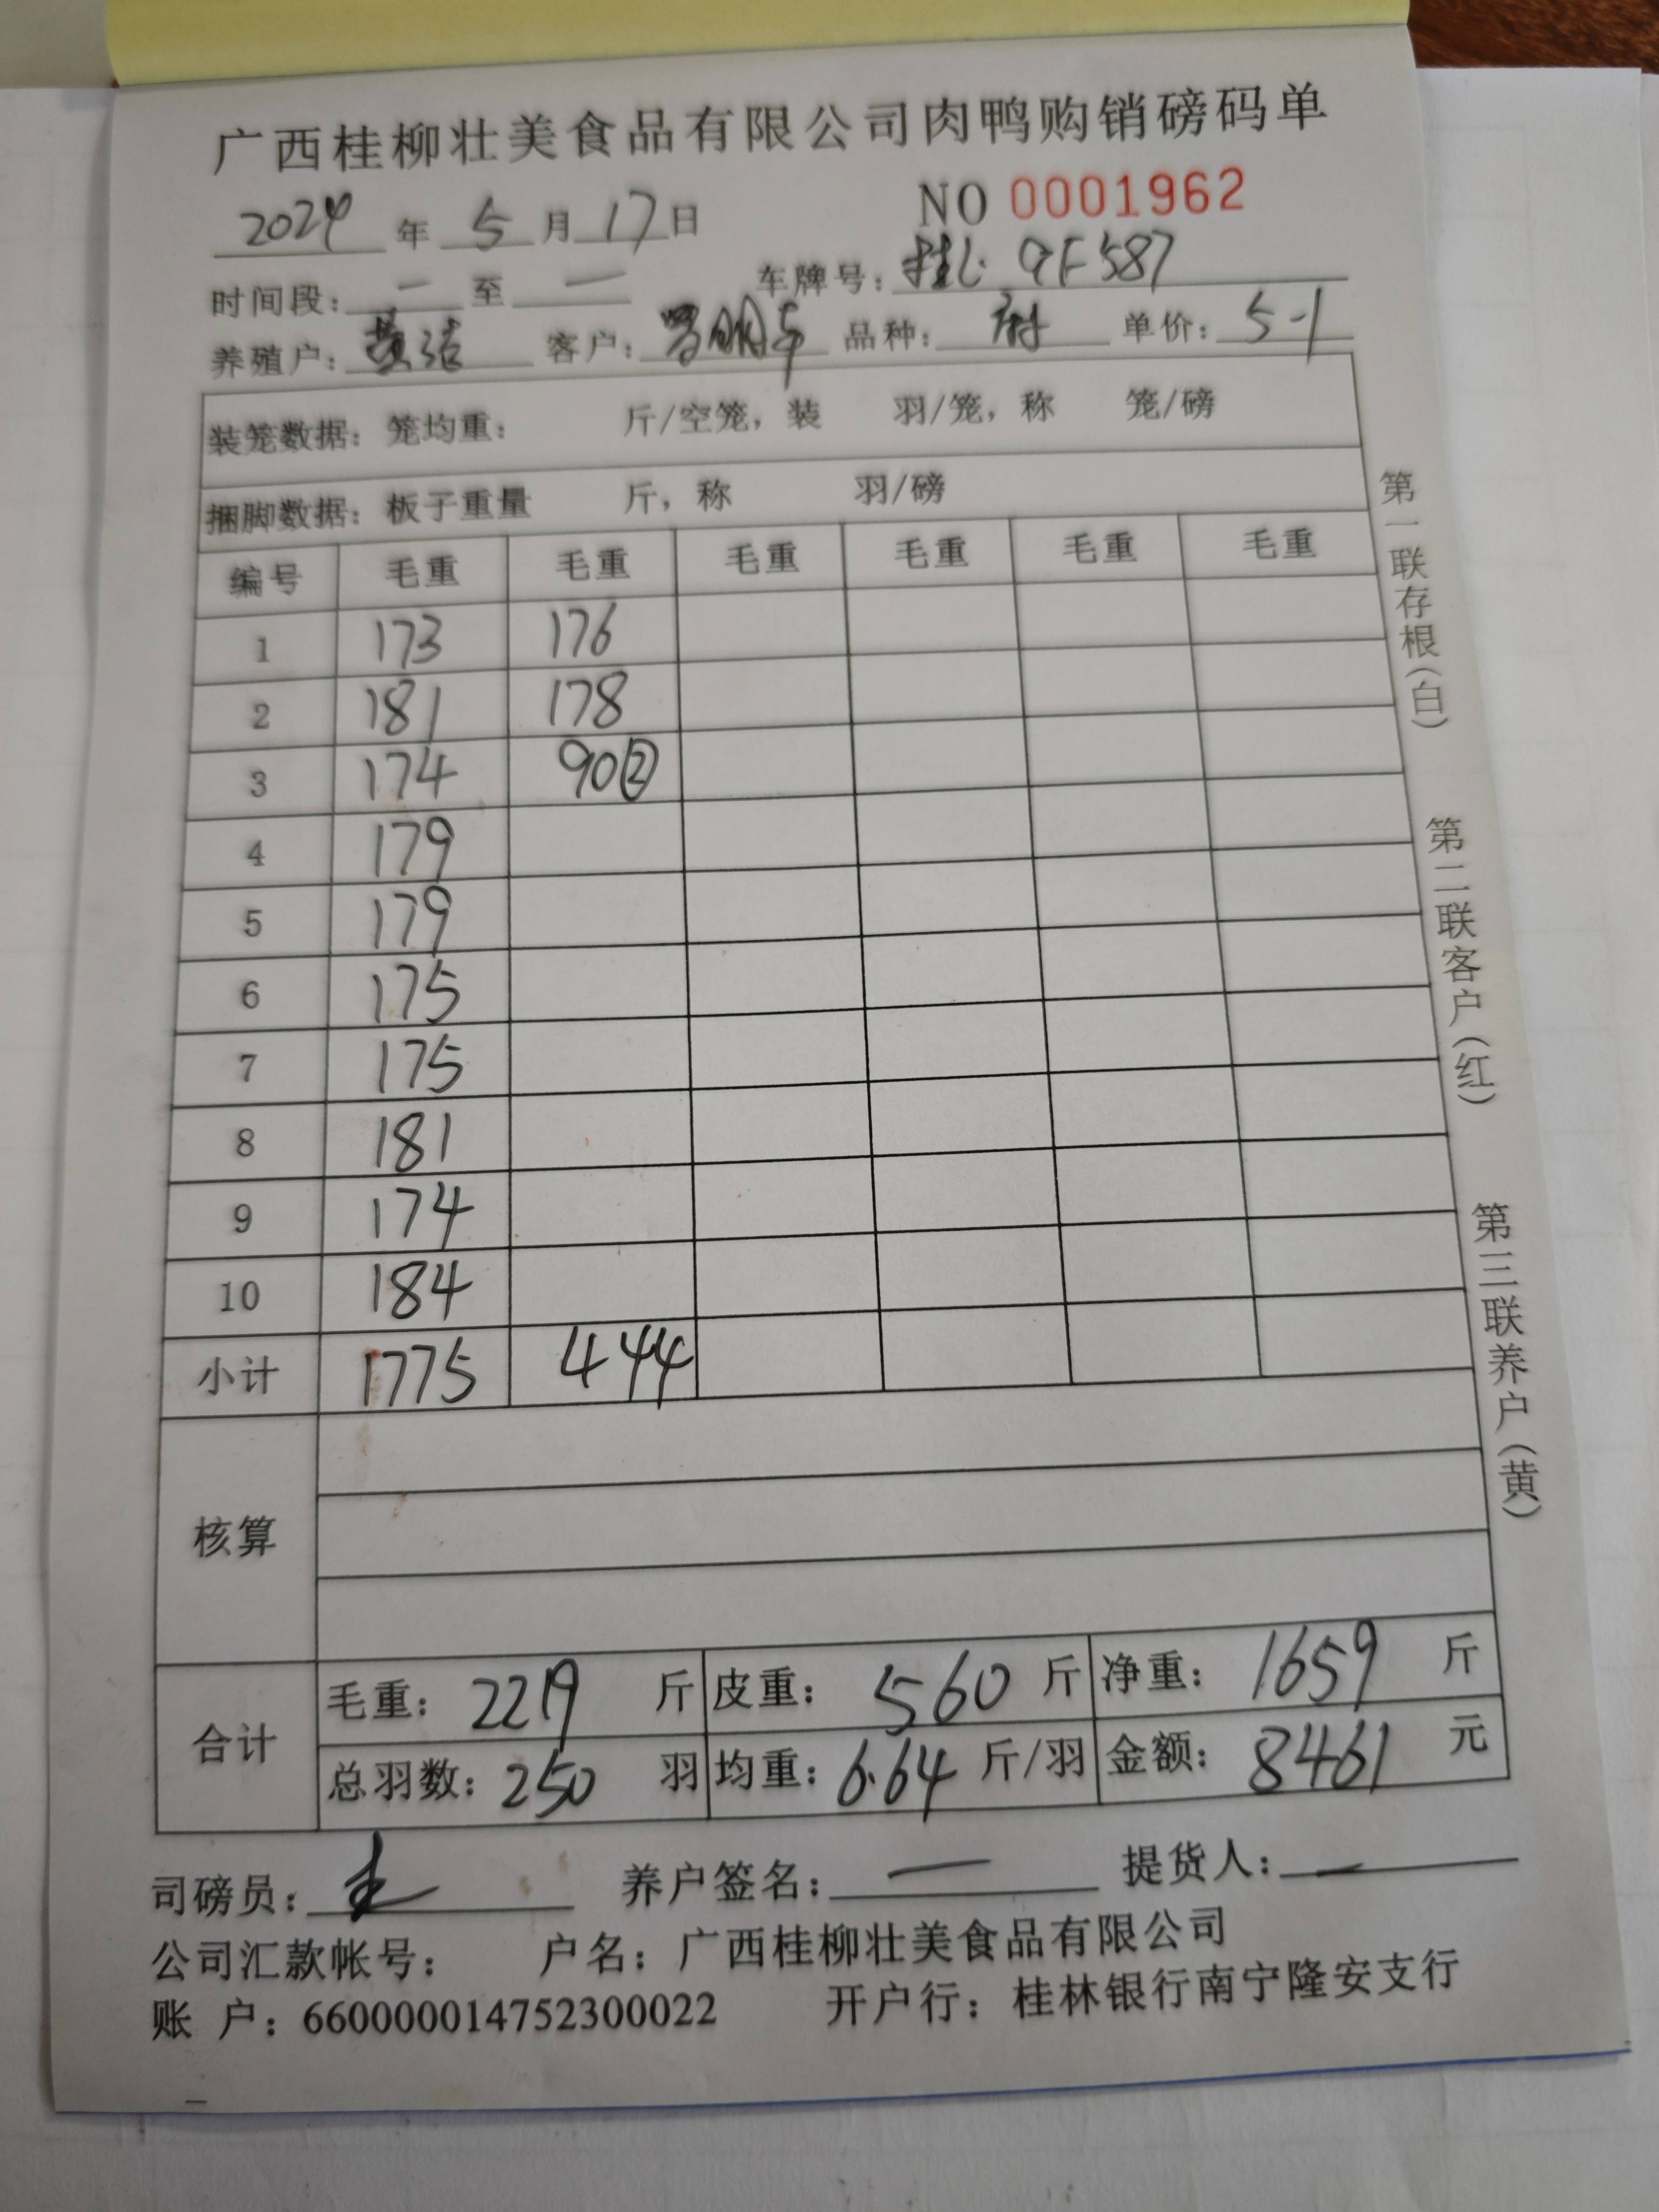 广西桂柳壮美食品有限公司肉鸭购销磅码单
2024年5月17日 NO 0001962
时间段: 一 至 一 车牌号: 桂 587
养殖户: 黄 客户: 明 品种: 单价: 5-1
装笼数据: 笼均重: 斤/空笼, 装 羽/笼, 称 笼/磅
捆脚数据: 板子重量 斤, 称 羽/磅
编号 毛重 毛重 毛重 毛重 毛重 毛重
1 173 176
2 181 178
3 174 90②
4 179
5 179
6 175
7 175
8 181
9 174
10 184
小计 1775 444
核算
合计
毛重: 2219 斤 皮重: 560 斤 净重: 1659 斤
总羽数: 250 羽 均重: 6.64 斤/羽 金额: 8461 元
司磅员: 养户签名: 一 提货人: 一
公司汇款帐号: 户名: 广西桂柳壮美食品有限公司
账 户: 660000014752300022 开户行: 桂林银行南宁隆安支行
第一联存根(白)
第二联客户(红)
第三联养户(黄)